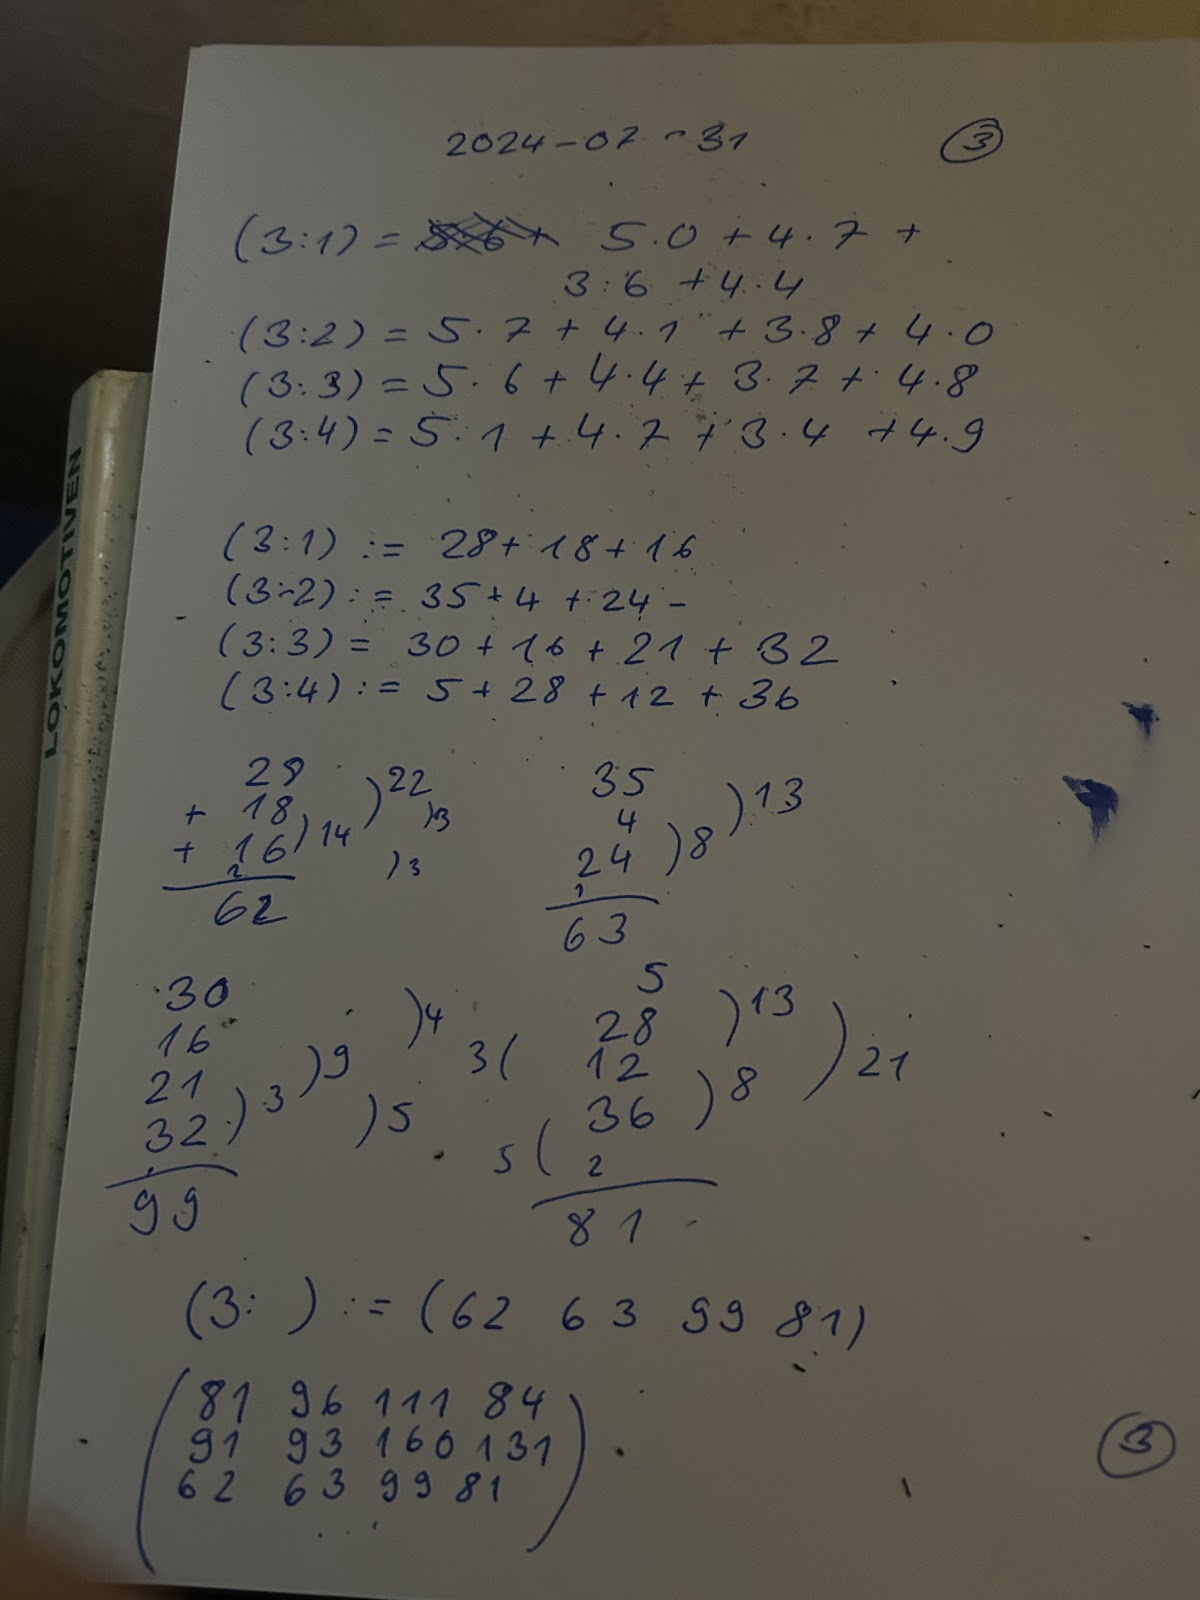 2024-07-31 3
(3:1) = 5·0 + 4·7 +
3:6 + 4·4
(3:2) = 5·7 + 4·1 + 3·8 + 4·0
(3:3) = 5·6 + 4·4 + 3·7 + 4·8
(3:4) = 5·1 + 4·7 + 3·4 + 4·9
(3:1) := 28 + 18 + 16
(3:2) := 35 + 4 + 24 -
(3:3) = 30 + 16 + 21 + 32
(3:4) := 5 + 28 + 12 + 36
28 )22
+ 18 )14 )3
+ 16 )3
2
62
35 )13
4
24 )8
1
63
30
16 )4
21 )9
32 )3 )5
99
5
28 )13
3( 12 )21
36 )8
5( 2
81
(3: ) := (62 63 99 81)
( 81 96 111 84 )
91 93 160 131
62 63 99 81
3
LOKOMOTIVEN